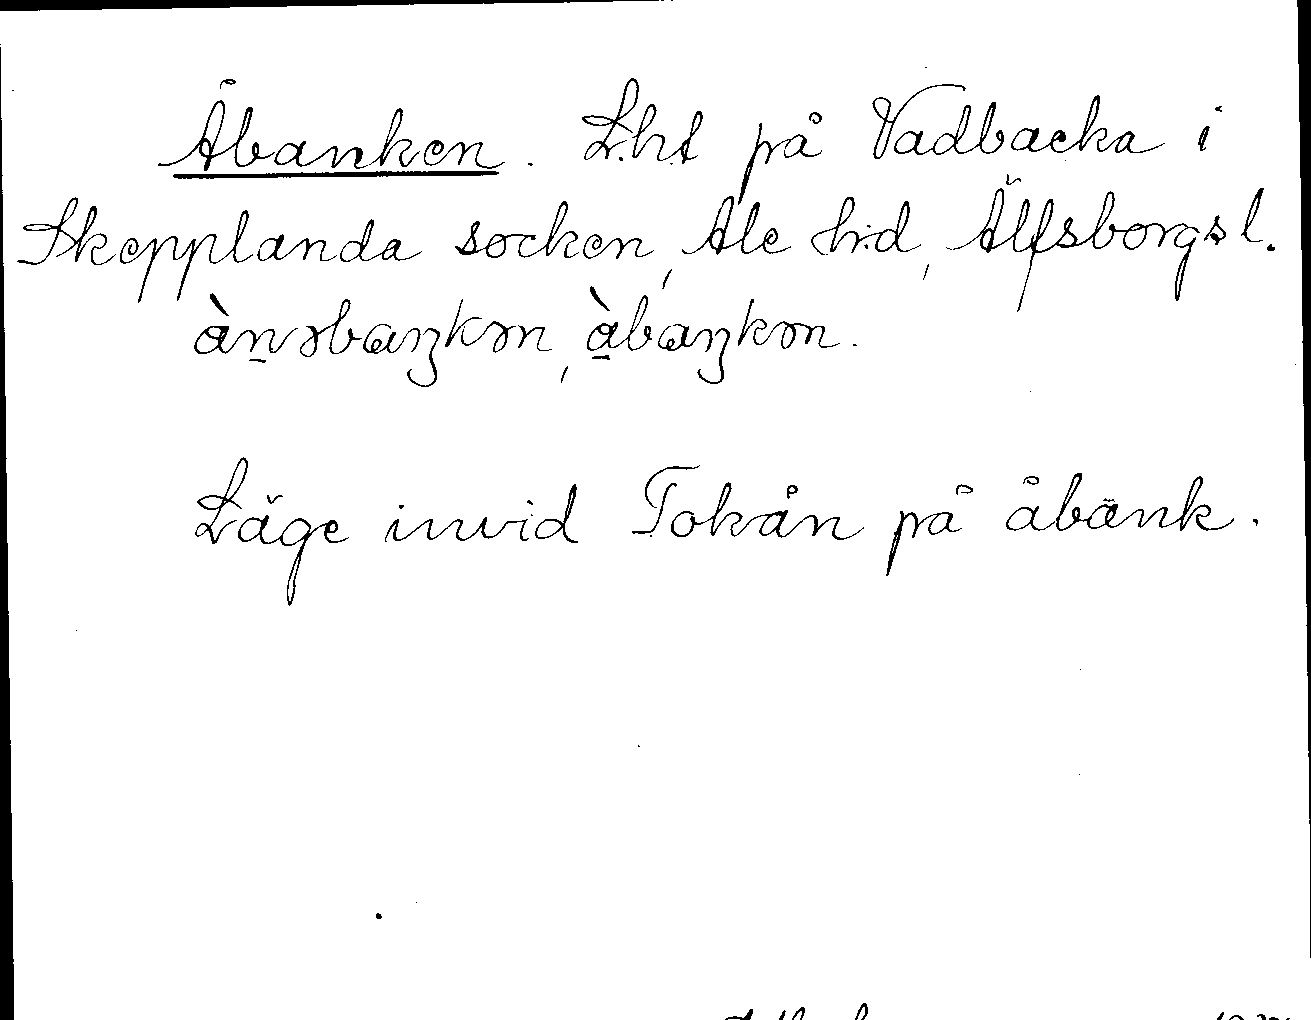 Åbanken. L.ht på Vadbacka i
Skepplanda socken, Ale h:d, Älfsborgs l.
ànəbaŋkən, àbaŋkən.
Läge invid Tokån på åbänk.